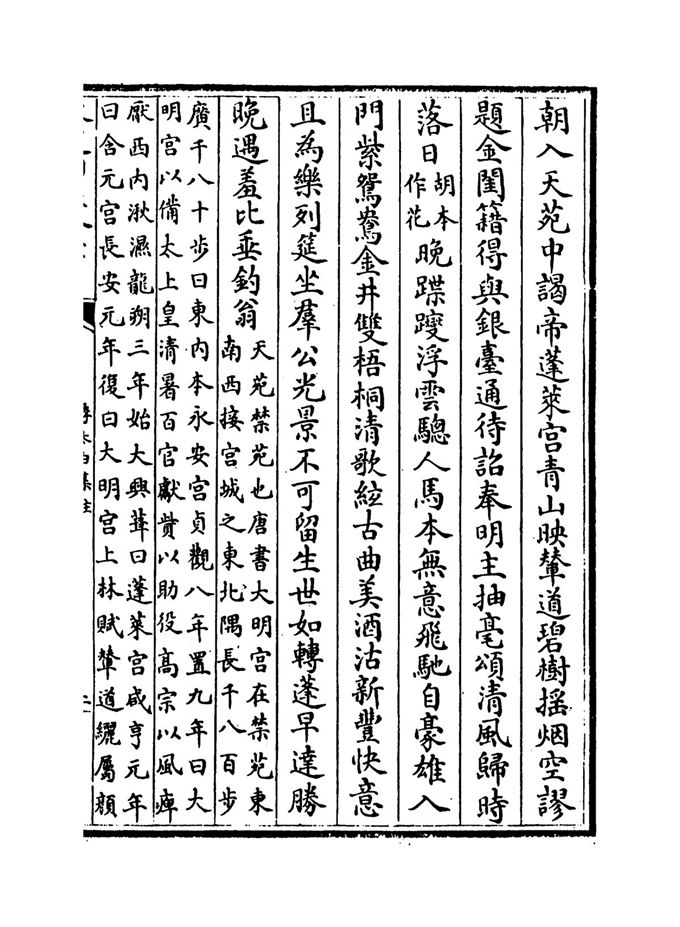 朝入天苑中謁帝蓬萊宫青山映輦道碧樹揺烟空謬
題金閨籍得與銀臺通待詔奉明主抽毫頌清風歸時
落日胡本作花晚蹀躞浮雲驄人馬本無意飛馳自豪雄入
門紫鴛鴦金井雙梧桐清歌絃古曲美酒沽新豐快意
且為樂列筵坐羣公光景不可留生世如轉蓬早達勝
晚遇羞比垂釣翁
天苑禁苑也唐書大明宫在禁苑東
南西接宫城之東北隅長千八百步
廣千八十步曰東内本永安宫貞觀八年置九年曰大
明宫以備太上皇清暑百官獻貲以助役髙宗以風痺
厭西内湫濕龍朔三年始大興葺曰蓬萊宫咸亨元年
曰含元宫長安元年復曰大明宫上林賦輦道纚屬顔
李太白集注